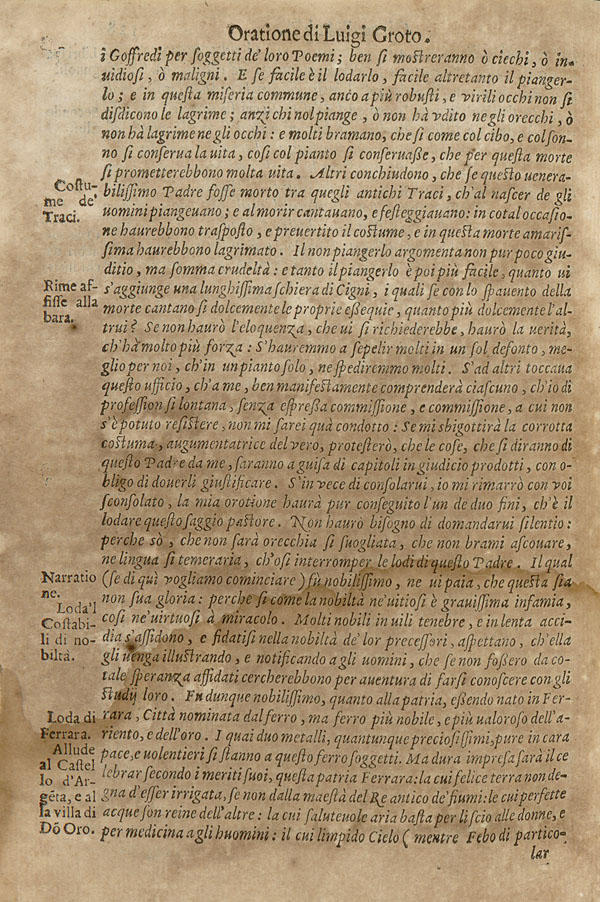 Oratione di Luigi Groto.
i Goffredi per soggetti de' loro Poemi; ben si mostreranno ò ciechi, ò in
uidiosi, ò maligni. E se facile è il lodarlo, facile altretanto il pianger-
lo; e in questa miseria commune, anco a più robusti, e virili occhi non si
disdicono le lagrime; anzi chi nol piange, ò non hà vdito ne gli orecchi, ò
non hà lagrime ne gli occhi: e molti bramano, che si come col cibo, e col son-
no si conserua la uita, cosi col pianto si conseruasse, che per questa morte
si prometterebbono molta uita. Altri conchiudono, che se questo uenera-
bilissimo Padre fosse morto tra quegli antichi Traci, ch'al nascer de gli
uomini piangeuano; e al morir cantauano, e festeggiauano: in cotal occasio-
ne haurebbono trasposto, e preuertito il costume, e in questa morte amaris-
sima haurebbono lagrimato. Il non piangerlo argomenta non pur poco giu-
ditio, ma somma crudeltà: e tanto il piangerlo è poi più facile, quanto ui
s'aggiunge una lunghissima schiera di Cigni, i quali se con lo spauento della
morte cantano si dolcemente le proprie essequie, quanto più dolcemente l'al-
trui? Se non haurò l'eloquenza, che ui si richiederebbe, haurò la uerità,
ch'hà molto più forza: S'hauremmo a sepelir molti in un sol defonto, me-
glio per noi, ch'in un pianto solo, ne spediremmo molti. S'ad altri toccaua
questo ufficio, ch'a me, ben manifestamente comprenderà ciascuno, ch'io di
profession si lontana, senza espressa commissione, e commissione, a cui non
s'è potuto resistere, non mi sarei quà condotto: Se mi sbigottirà la corrotta
costuma, augumentatrice del vero, protesterò, che le cose, che si diranno di
questo Padre da me, saranno a guisa di capitoli in giudicio prodotti, con o-
bligo di douerli giustificare. S'in vece di consolarui, io mi rimarrò con voi
sconsolato, la mia orotione haurà pur conseguito l'un de duo fini, ch'è il
lodare questo saggio pastore. Non haurò bisogno di domandarui silentio:
perche sò, che non sarà orecchia si suogliata, che non brami ascouare,
ne lingua si temeraria, ch'osi interromper le lodi di questo Padre. Il qual
(se di quì vogliamo cominciare) fù nobilissimo, ne ui paia, che questa sia
non sua gloria: perche si come la nobiltà ne' uitiosi è grauissima infamia,
cosi ne' uirtuosi à miracolo. Molti nobili in uili tenebre, e in lenta acci
dia s'assidono, e fidatisi nella nobiltà de' lor precessori, aspettano, ch'ella
gli uenga illustrando, e notificando a gli uomini, che se non fossero da co-
tale speranza affidati cercherebbono per auentura di farsi conoscere con gli
studij loro. Fu dunque nobilissimo, quanto alla patria, essendo nato in Fer-
rara, Città nominata dal ferro, ma ferro più nobile, e più ualoroso dell'a-
riento, e dell'oro. I quai duo metalli, quantunque preciosissimi, pure in cara
pace, e uolentieri si stanno a questo ferro soggetti. Ma dura impresa sarà il ce
lebrar secondo i meriti suoi, questa patria Ferrara: la cui felice terra non de-
gna d'esser irrigata, se non dalla maestà del Re antico de' fiumi: le cui perfette
acque son reine dell'altre: la cui saluteuole aria basta per liscio alle donne, e
per medicina a gli huomini: il cui limpido Cielo ( mentre Febo di partico-
lar
Costu-
me de'
Traci.
Rime af-
fisse alla
bara.
Narratio
ne.
Loda'l
Costabi-
li di no-
biltà.
Loda di
Ferrara.
Allude
al Castel
lo d'Ar-
gẽta, e al
la villa di
Dõ Oro.